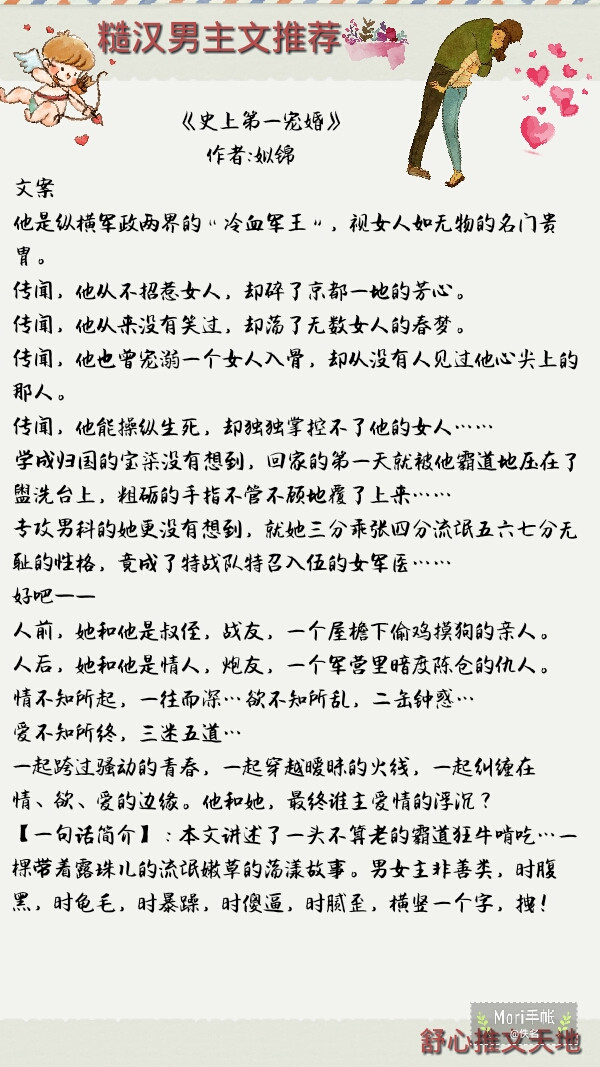 糙汉男主文推荐
《史上第一宠婚》
作者:姒锦
文案
他是纵横军政两界的"冷血军王"，视女人如无物的名门贵
胄。
传闻，他从不招惹女人，却碎了京都一地的芳心。
传闻，他从来没有笑过，却荡了无数女人的春梦。
传闻，他也曾宠溺一个女人入骨，却从没有人见过他心尖上的
那人。
传闻，他能操纵生死，却独独掌控不了他的女人……
学成归国的宝柒没有想到，回家的第一天就被他霸道地压在了
盥洗台上，粗砺的手指不管不顾地覆了上来……
专攻男科的她更没有想到，就她三分乖张四分流氓五六七分无
耻的性格，竟成了特战队特召入伍的女军医……
好吧——
人前，她和他是叔侄，战友，一个屋檐下偷鸡摸狗的亲人。
人后，她和他是情人，炮友，一个军营里暗度陈仓的仇人。
情不知所起，一往而深…欲不知所乱，二缶钟惑…
爱不知所终，三迷五道…
一起跨过骚动的青春，一起穿越暧昧的火线，一起纠缠在
情、欲、爱的边缘。他和她，最终谁主爱情的浮沉？
【一句话简介】：本文讲述了一头不算老的霸道狂牛啃吃…一
棵带着露珠儿的流氓嫩草的荡漾故事。男女主非善类，时腹
黑，时龟毛，时暴躁，时傻逼，时腻歪，横竖一个字，拽！
Mori手帐
@佚名
舒心推文天地